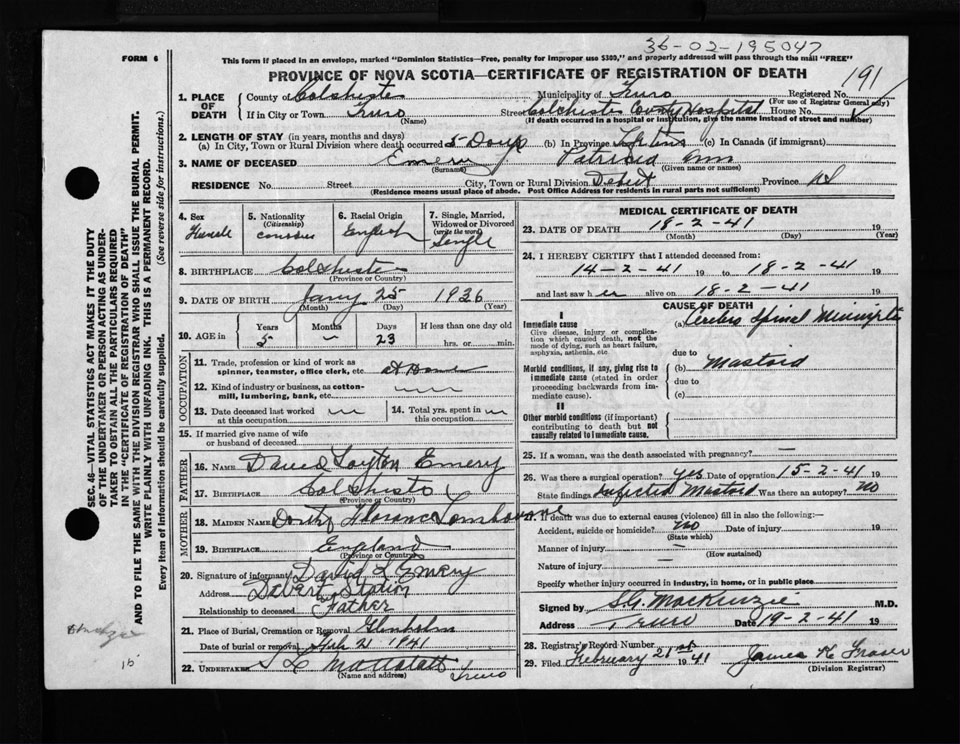 36-02-195047
FORM 6
This form if placed in an envelope, marked "Dominion Statistics—Free, penalty for improper use $300," and properly addressed will pass through the mail "FREE"
PROVINCE OF NOVA SCOTIA—CERTIFICATE OF REGISTRATION OF DEATH
191
1. PLACE OF DEATH
County of Colchester Municipality of Truro Registered No.
(For use of Registrar General only)
If in City or Town Truro Street Colchester County Hospital House No.
(Name) (If death occurred in a hospital or institution, give the name instead of street and number)
2. LENGTH OF STAY (in years, months and days)
(a) In City, Town or Rural Division where death occurred 5 Days (b) In Province Lifetime (c) In Canada (if immigrant)
3. NAME OF DECEASED Emery Patricia Ann
(Surname) (Given name or names)
RESIDENCE No. Street City, Town or Rural Division Debert Province NS
(Residence means usual place of abode. Post Office Address for residents in rural parts not sufficient)
4. Sex
Female
5. Nationality
(Citizenship)
6. Racial Origin
English
7. Single, Married, Widowed or Divorced
(write the word)
Single
8. BIRTHPLACE Colchester
(Province or Country)
9. DATE OF BIRTH Jany 25 1936
(Month) (Day) (Year)
10. AGE in
Years Months Days If less than one day old
5 — 23 hrs. or min.
OCCUPATION
11. Trade, profession or kind of work as spinner, teamster, office clerk, etc. at Home
12. Kind of industry or business, as cotton-mill, lumbering, bank, etc.
13. Date deceased last worked at this occupation
14. Total yrs. spent in this occupation
15. If married give name of wife or husband of deceased
FATHER
16. NAME David Layton Emery
17. BIRTHPLACE Colchester
(Province or Country)
MOTHER
18. MAIDEN NAME Florence
19. BIRTHPLACE England
(Province or Country)
20. Signature of informant David L Emery
Address Debert Station
Relationship to deceased Father
21. Place of Burial, Cremation or Removal Glenholm
Date of burial or removal Feb 21 1941
22. UNDERTAKER
(Name and address) Truro
MEDICAL CERTIFICATE OF DEATH
23. DATE OF DEATH 18-2-41 19
(Month) (Day) (Year)
24. I HEREBY CERTIFY that I attended deceased from:
14-2-41 19 to 18-2-41 19
and last saw her alive on 18-2-41 19
CAUSE OF DEATH
I
Immediate cause
Give disease, injury or complication which caused death, not the mode of dying, such as heart failure, asphyxia, asthenia, etc
(a) Cerebro Spinal
due to
Morbid conditions, if any, giving rise to immediate cause (stated in order proceeding backwards from immediate cause).
(b) Mastoid
due to
(c)
II
Other morbid conditions (if important) contributing to death but not causally related to immediate cause.
25. If a woman, was the death associated with pregnancy? —
26. Was there a surgical operation? yes Date of operation 15-2-41 19
State findings Infected Mastoid Was there an autopsy? NO
27. If death was due to external causes (violence) fill in also the following:—
Accident, suicide or homicide? NO Date of injury 19
(State which)
Manner of injury —
(How sustained)
Nature of injury —
Specify whether injury occurred in industry, in home, or in public place
Signed by S.G. MacKenzie M.D.
Address Truro Date 19-2-41 19
28. Registrar's Record Number
29. Filed February 21st 1941 James K Fraser
(Division Registrar)
SEC. 46—VITAL STATISTICS ACT MAKES IT THE DUTY OF THE UNDERTAKER OR PERSON ACTING AS UNDERTAKER TO OBTAIN ALL THE PARTICULARS REQUIRED IN THE "CERTIFICATE OF REGISTRATION OF DEATH"
AND TO FILE THE SAME WITH THE DIVISION REGISTRAR WHO SHALL ISSUE THE BURIAL PERMIT.
WRITE PLAINLY WITH UNFADING INK. THIS IS A PERMANENT RECORD.
Every item of information should be carefully supplied. (See reverse side for instructions.)
15